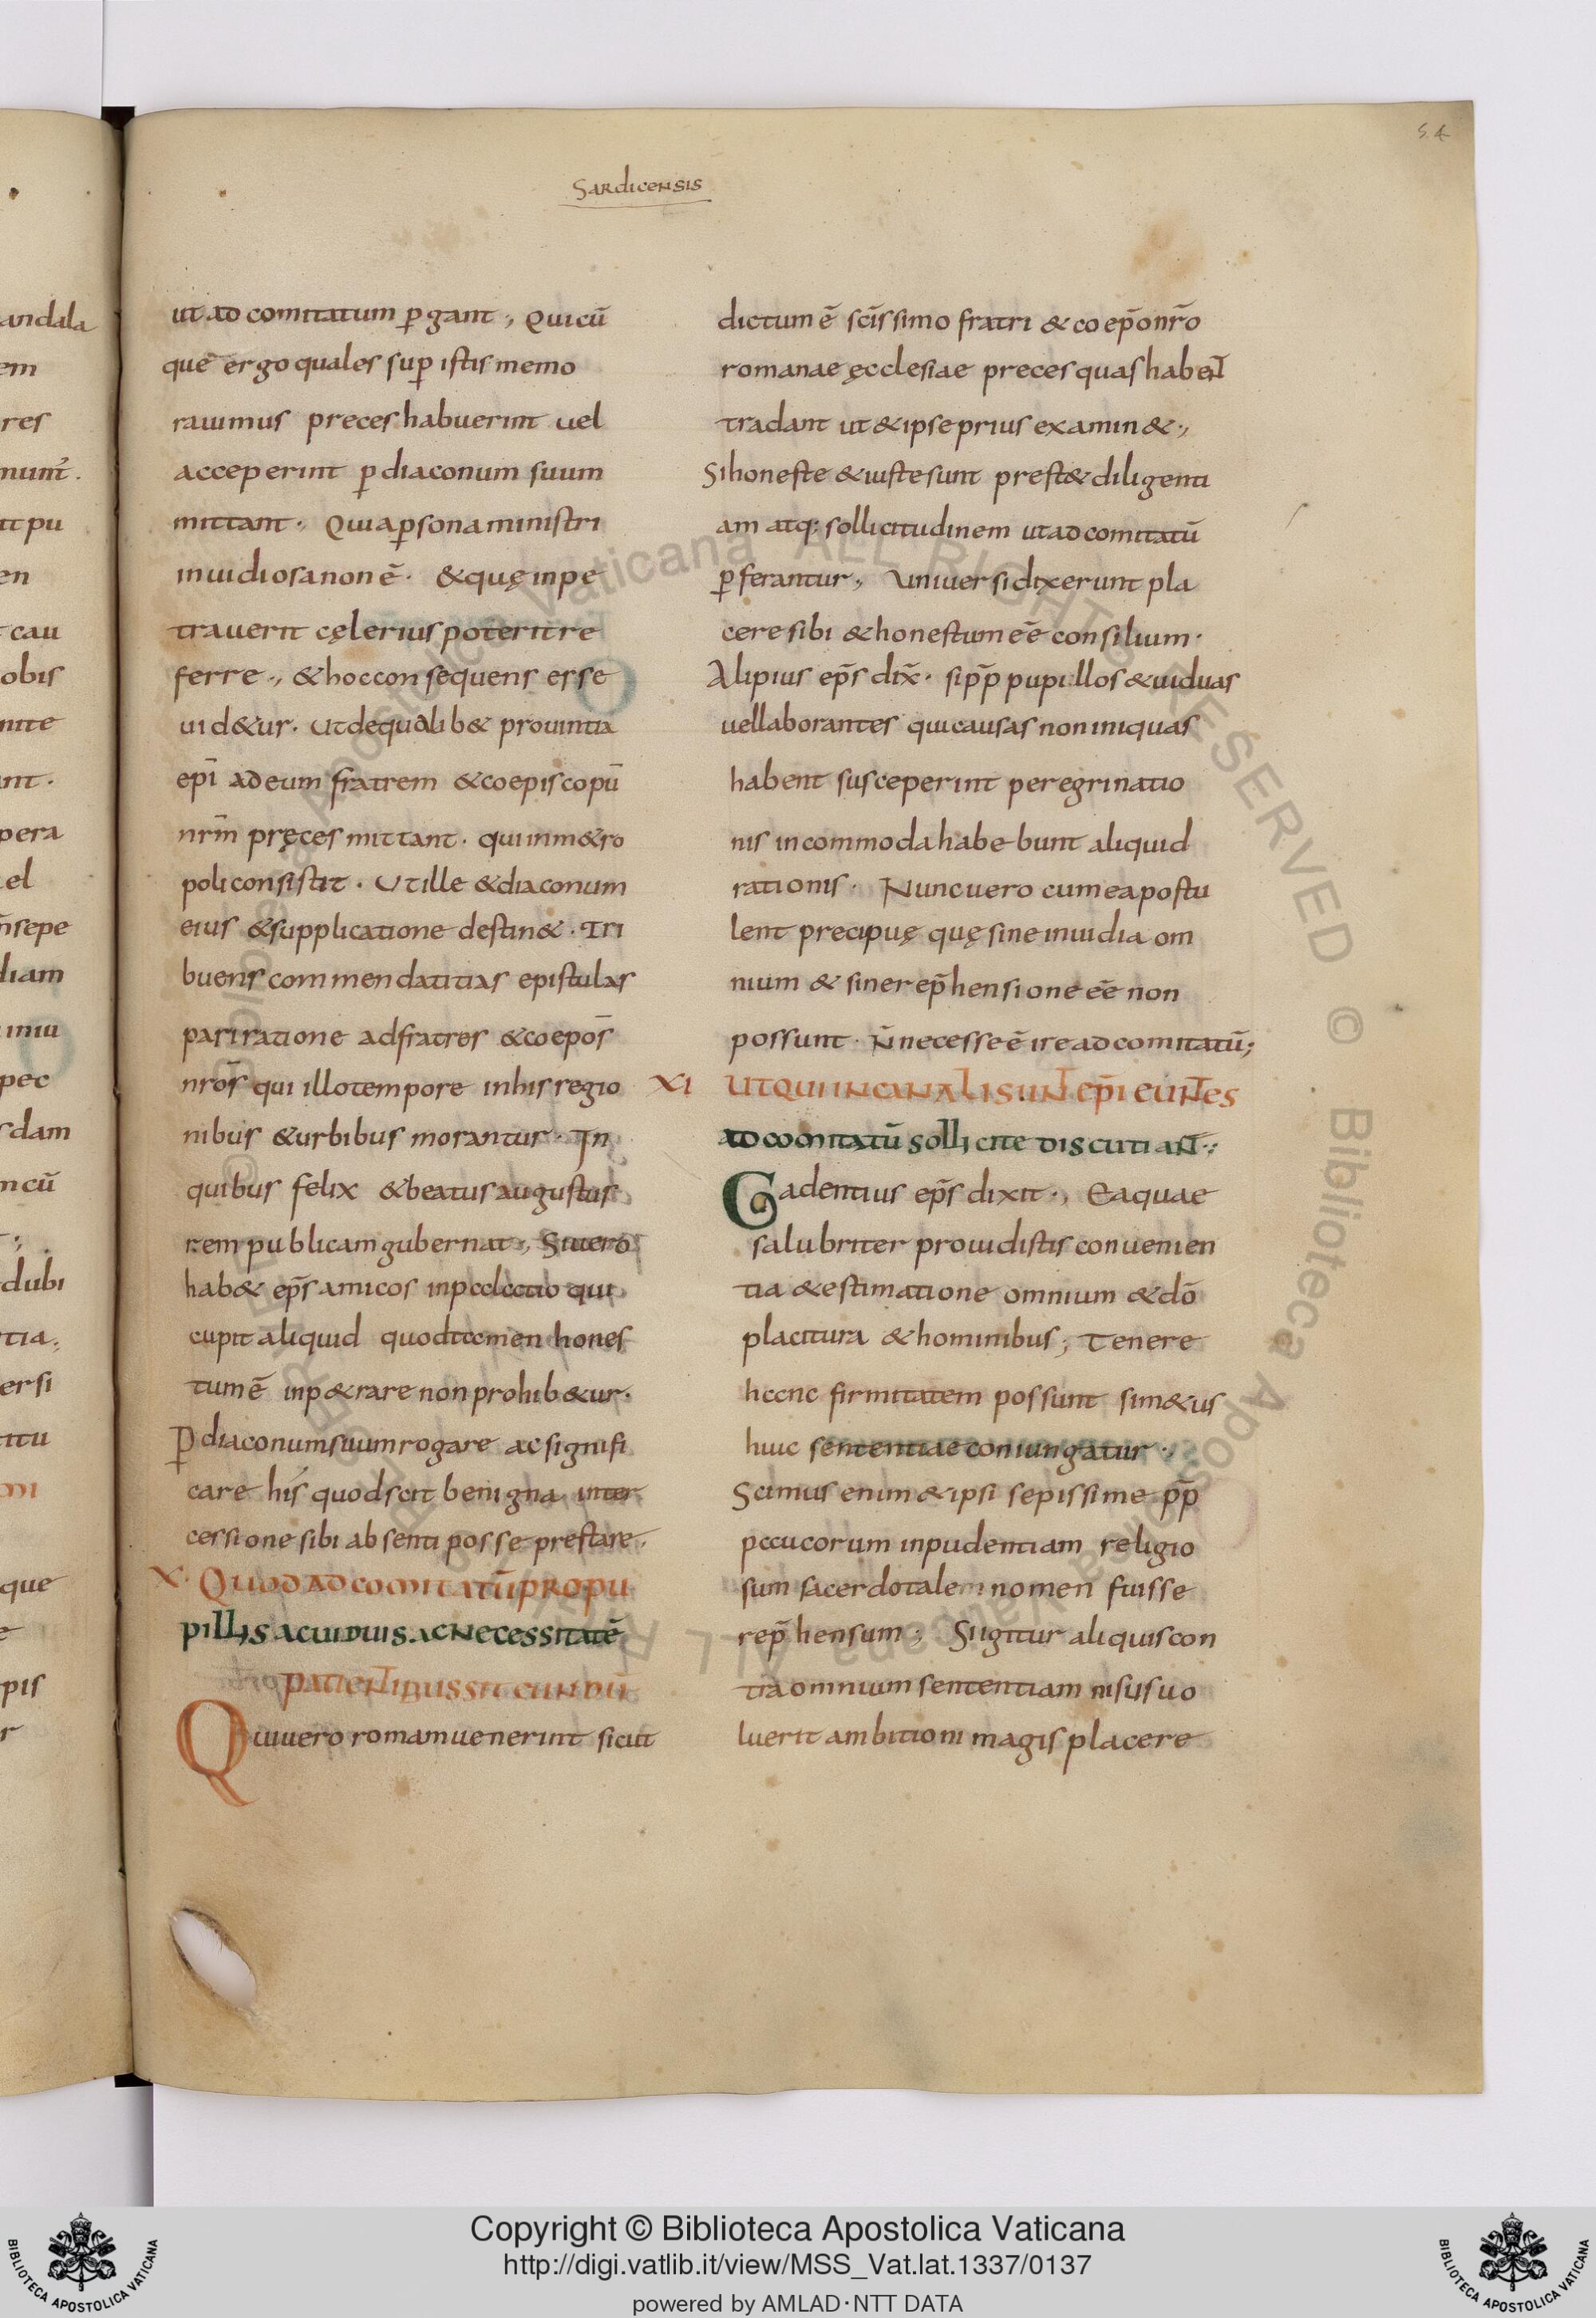 54
Sardicensis
andala
em
res
munt̄.
tt pu
en
t cau
obis
mite
nt.
pera
el
n̄sepe
diam
iniu
pec
sdam
ncū
dubi
tia;
ersi
titu
mi
que
e
pis
r
ut ad comitatum ꝑgant ; Quicū
que ergo quales suꝑ istis memo
rauimus preces habuerint uel
acceperint ꝑ diaconum suum
mittant · Quia ꝑsona ministri
inuidiosa non ē · & quę inpe
trauerit cęlerius poterit re
ferre ; & hoc consequens esse
uid&ur · ut de qualib& prouintia
epī ad eum fratrem & coepiscopū
nrm̄ pręces mittant · qui in m&ro
poli consistit · Ut ille & diaconum
eius & supplicatione destin& · Tri
buens commendatitias epistulas
pari ratione ad fratres & coepos̄
nros̄ qui illo tempore in his regio
nibus & urbibus morantur · In
quibus felix & beatus augustus
rem publicam gubernat ; Si uero
hab& ep̄s amicos in palatio qui
cupit aliquid quod tamen hones
tum ē inp&rare non prohib&ur ·
Ꝑ diaconum suum rogare ac signifi
care his quod scit benigna inter
cessione sibi absenti posse prestare ·
X · QUOD AD COMITATŪ PRO PU
PILLIS AC UIDUIS AC NECESSITATĒ
PATIENTIBUS SIT EUNDŪ
Qui uero romam uenerint sicut
dictum ē scīssimo fratri & coep̄o nr̄o
romanae ęcclesiae preces quas habent
tradant ut & ipse prius examin& ;
Si honeste & iuste sunt prest& diligenti
am atq: sollicitudinem ut ad comitatū
ꝑferantur ; Uniuersi dixerunt pla
cere sibi & honestum eē consilium ·
Alipius ep̄s dix̄ · si pp̄ pupillos & uiduas
uel laborantes qui causas non iniquas
habent susceperint peregrinatio
nis incommoda habebunt aliquid
rationis · Nunc uero cum ea postu
lent precipuę quę sine inuidia om
nium & sine rep̄hensione eē non
possunt · N̄ necesse ē ire ad comitatū;
XI UT QUI IN CANALI SUNT EP̄I EUNTES
AD COMITATŪ SOLLICITE DISCUTIANT ;
Gadentius ep̄s dixit ; Ea quae
salubriter prouidistis conuenien
tia & estimatione omnium & dō
placitura & hominibus ; Tenere
hccnc firmitatem possunt si m&us
huic sententiae coniungatur ·,
Scimus enim & ipsi sepissime pp̄
paucorum inpudentiam religio
sum sacerdotale nomen fuisse
rep̄hensum ; Si igitur aliquis con
tra omnium sententiam nisus uo
luerit ambitioni magis placere
Copyright © Biblioteca Apostolica Vaticana
http://digi.vatlib.it/view/MSS_Vat.lat.1337/0137
powered by AMLAD·NTT DATA